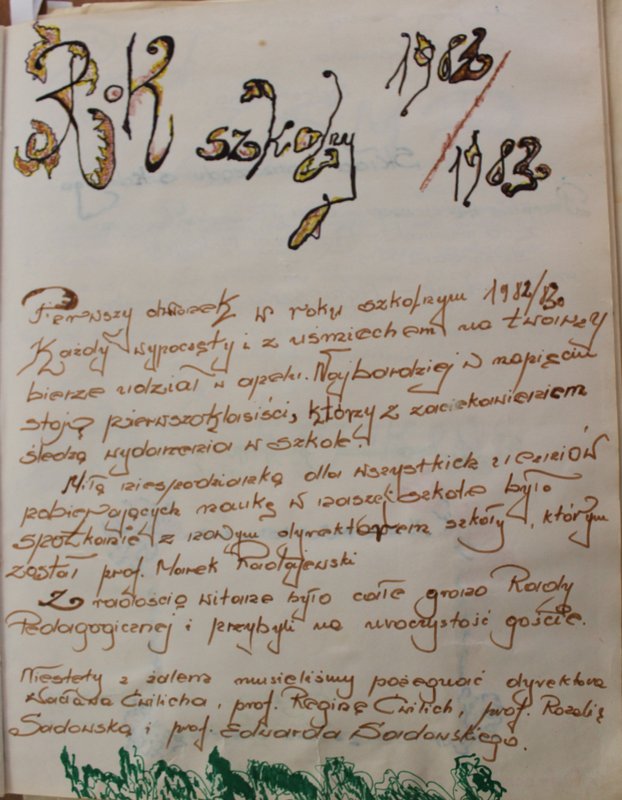 Rok szkolny 1982/
1983.
Pierwszy dzwonek w roku szkolnym 1982/83.
Każdy wypoczęty i z uśmiechem na twarzy
bierze udział w apelu. Najbardziej w napięciu
stoją pierwszoklasiści, którzy z zaciekawieniem
śledzą wydarzenia w szkole.
Miłą niespodzianką dla wszystkich uczniów
pobierających naukę w naszej szkole było
spotkanie z nowym dyrektorem szkoły, którym
został prof. Marek
Z radością witane było całe grono Rady
Pedagogicznej i przybyli na uroczystość goście.
Niestety z żalem musieliśmy pożegnać dyrektora
Ćwilicha, prof. Reginę Ćwilich, prof. Rozalię
Sadowską i prof. Edwarda Sadowskiego.